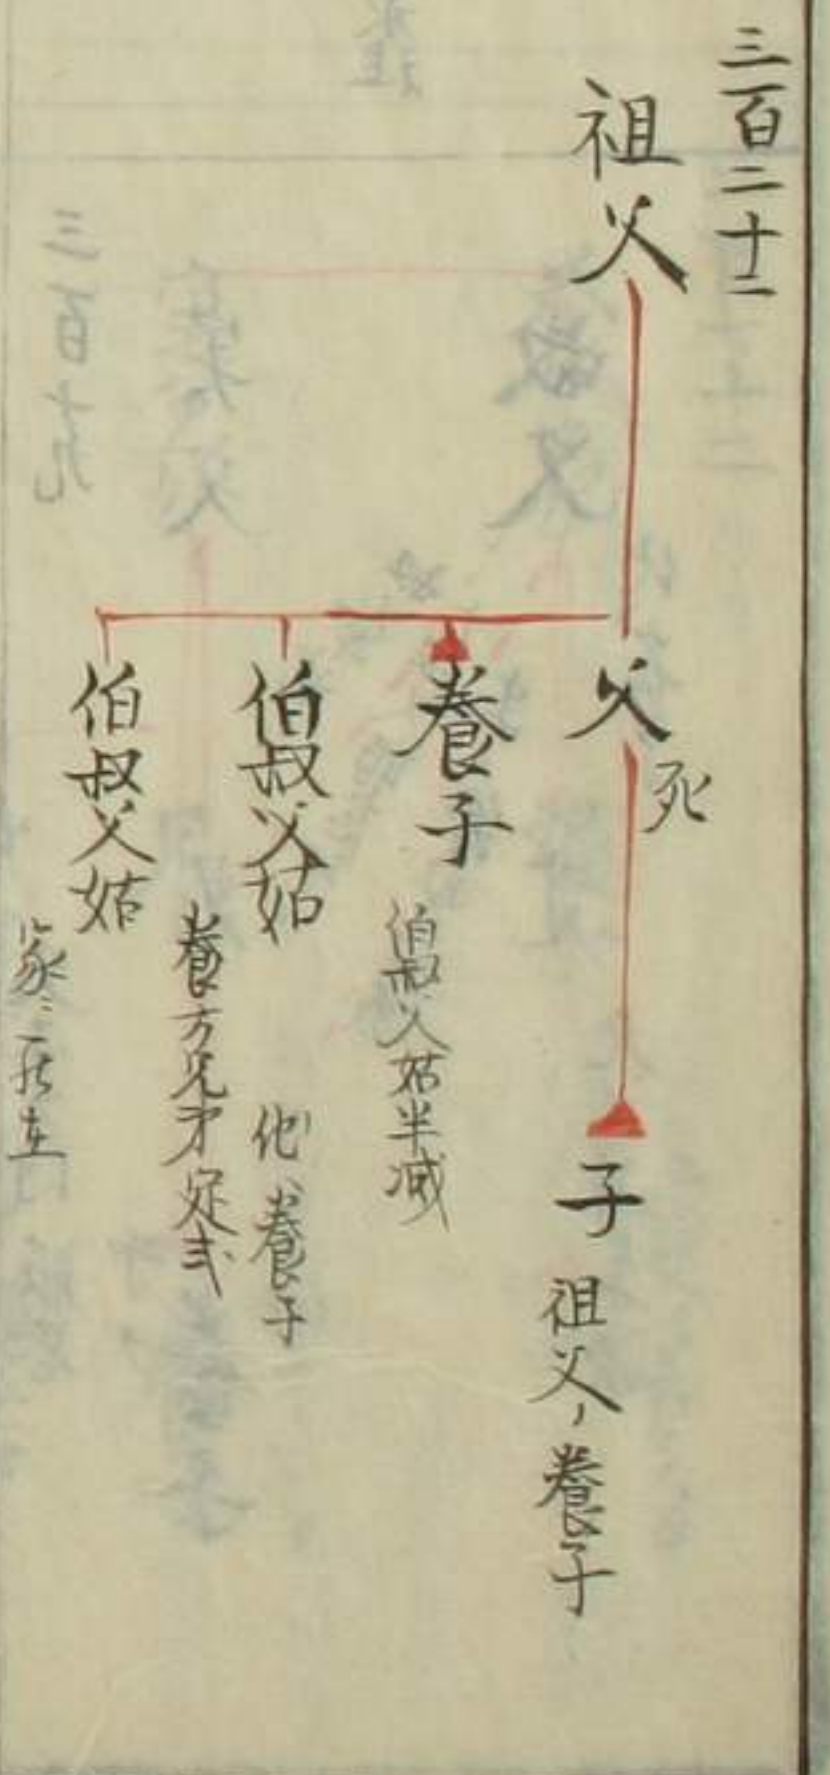 三百二十二
祖父
父
死
子
祖父ノ養子
養子
伯叔父姑半減
伯叔父姑
他ヘ養子
養方兄弟定式
伯叔父姑
家ニ在